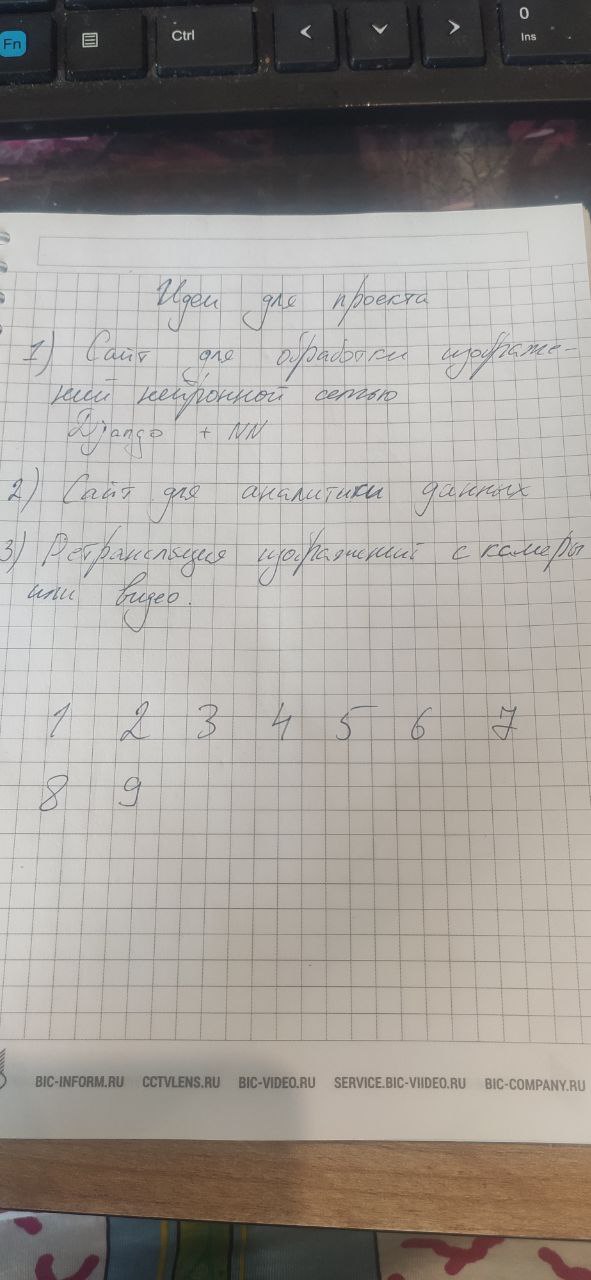 Fn
Ctrl
0
Ins
Идеи для проекта
1) Сайт для обработки изображе-
ний нейронной сетью
Django + NN
2) Сайт для аналитики данных
3) Ретрансляция изображений с камеры
или видео.
1 2 3 4 5 6 7
8 9
BIC-INFORM.RU CCTVLENS.RU BIC-VIDEO.RU SERVICE.BIC-VIIDEO.RU BIC-COMPANY.RU